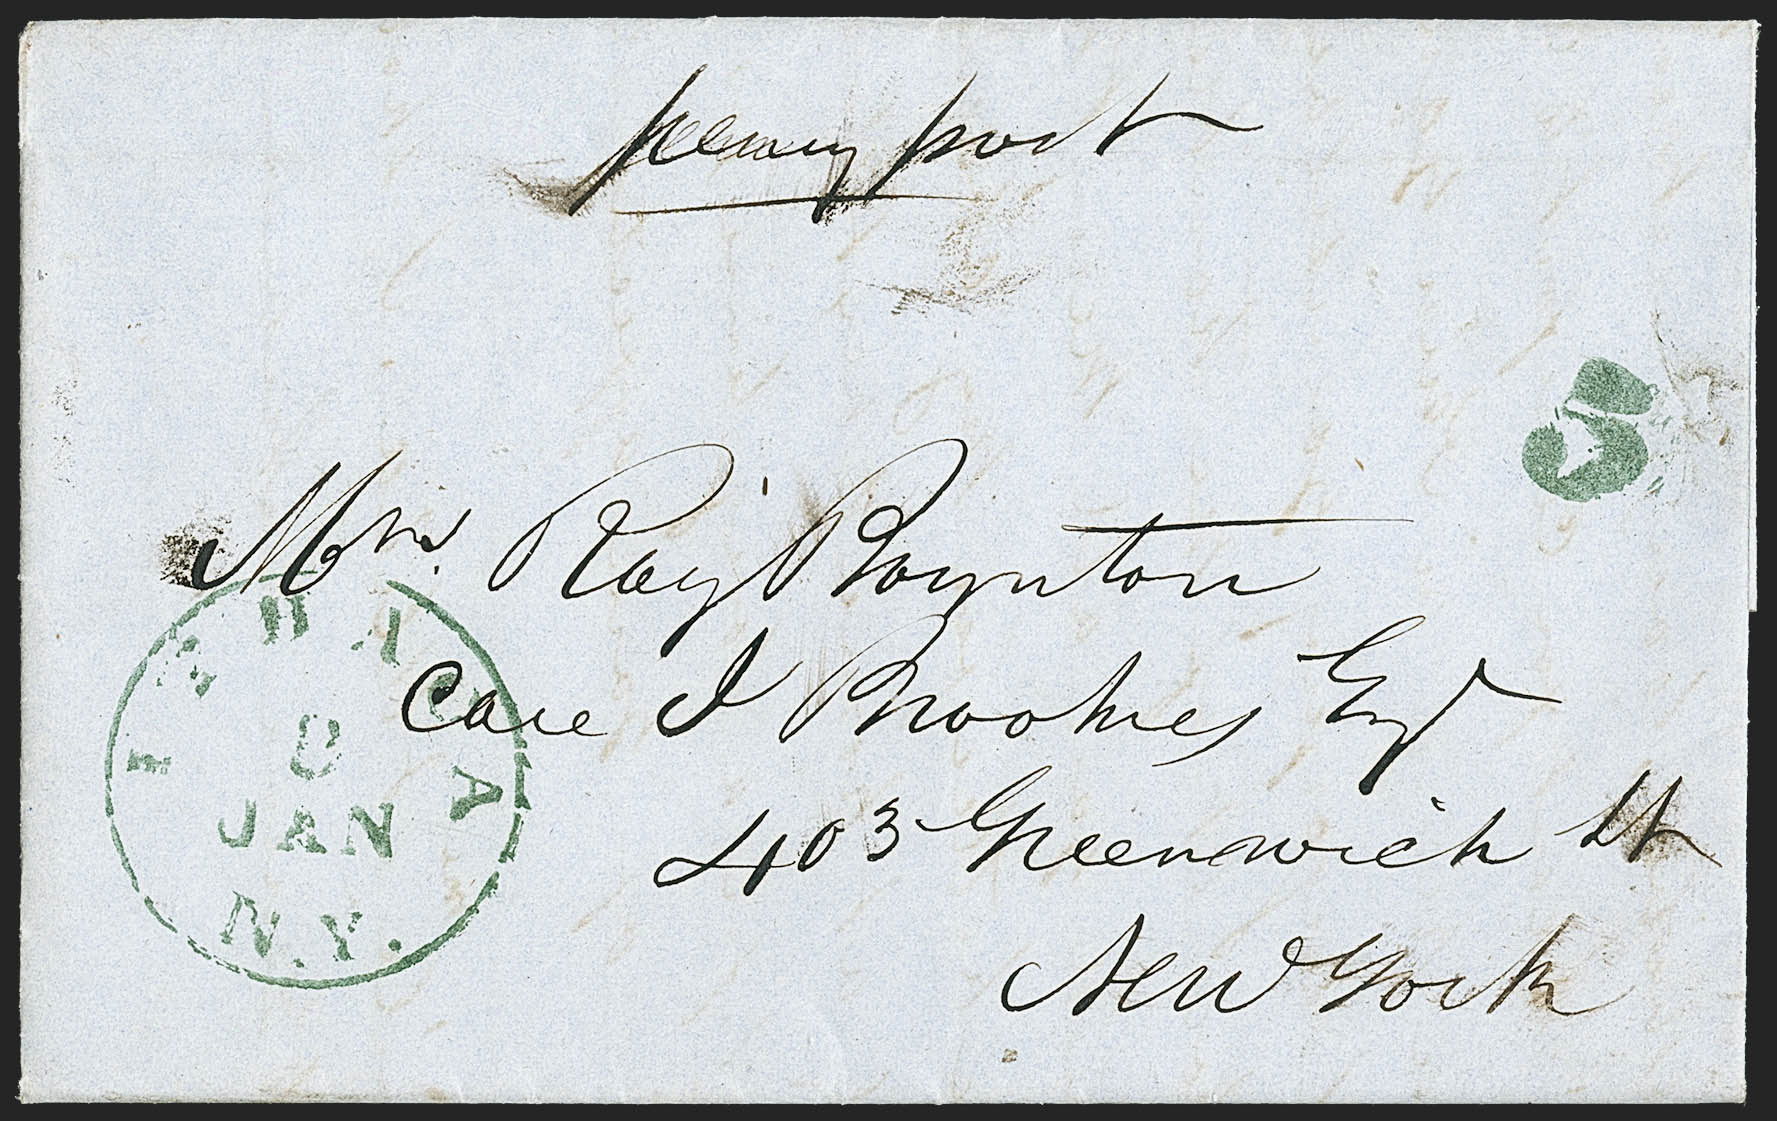 penny post
5
Mrs. Ray Boynton
Care I Brookes Esqr
403 Greenwich St
New York
ITHACA
8
JAN
N.Y.